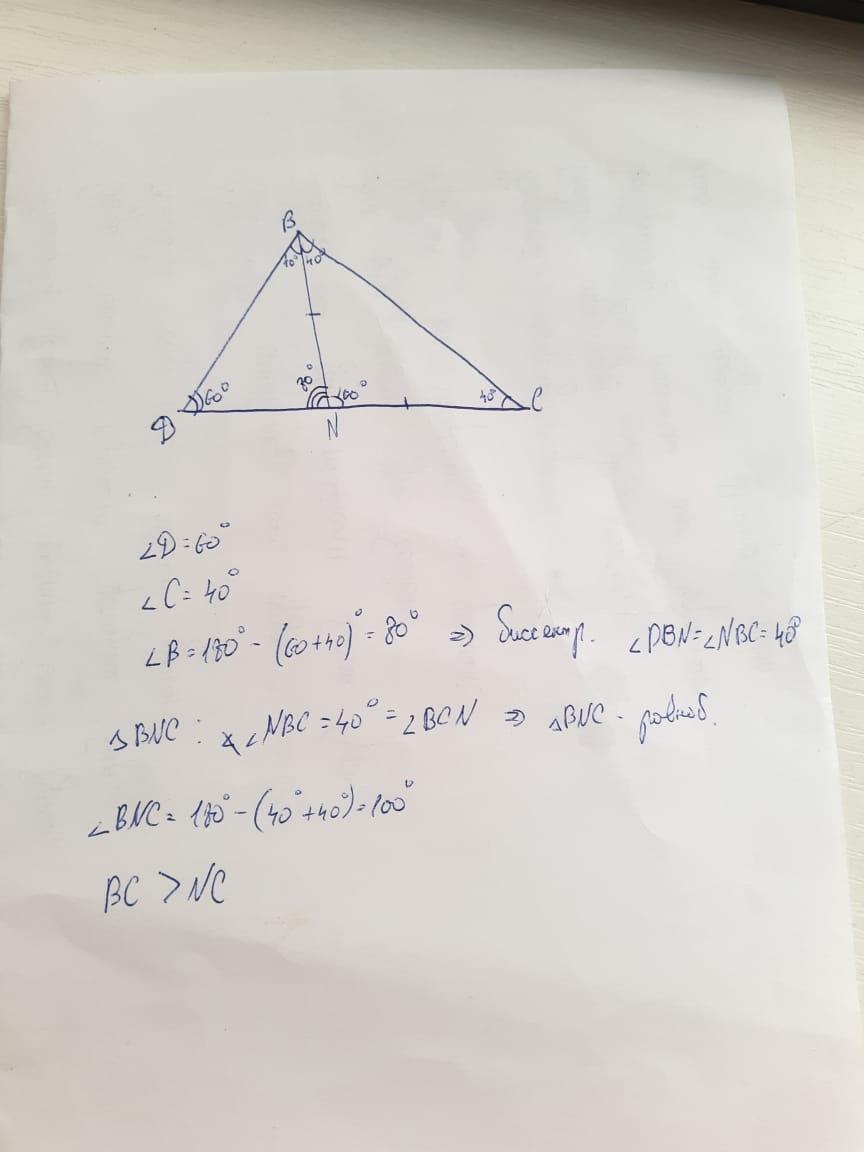 B
40° 40°
60° 80° 100° 40°
D N C
∠D=60°
∠C=40°
∠B=180°-(60+40)°=80° ⇒ биссектр. ∠DBN=∠NBC=40°
△BNC: ∠NBC=40°=∠BCN ⇒ △BNC - равноб.
∠BNC=180°-(40°+40°)=100°
BC > NC